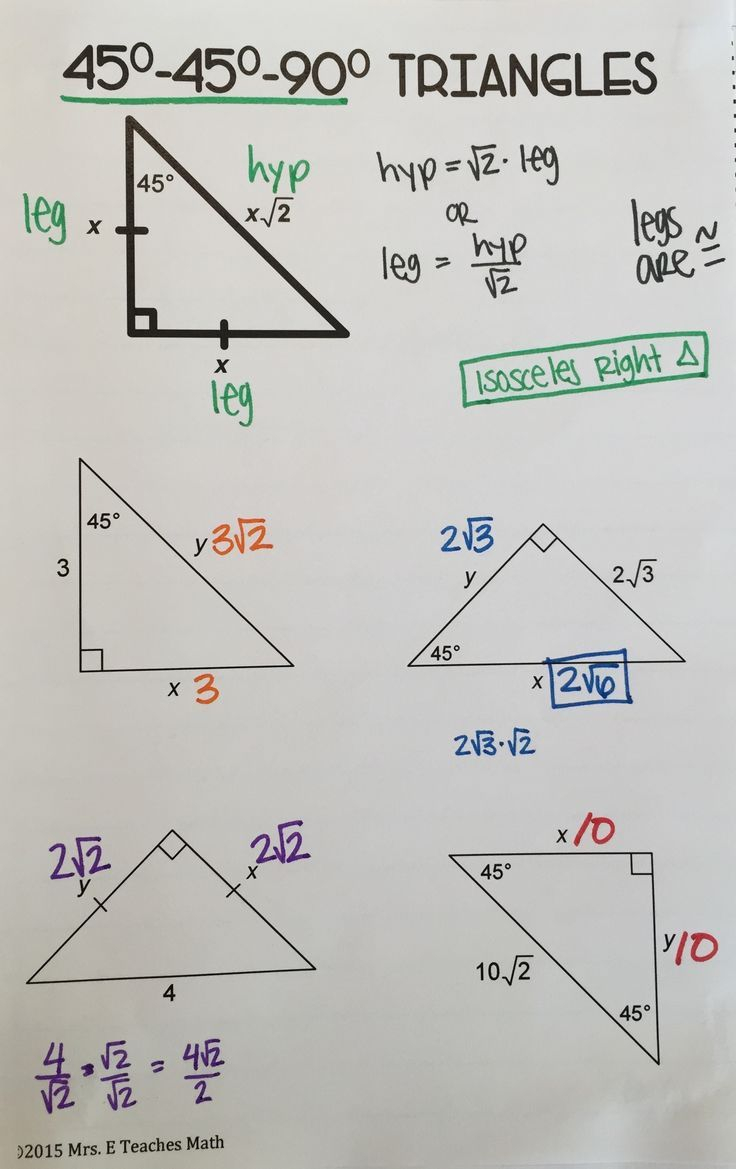 45⁰-45⁰-90⁰ TRIANGLES
45°
hyp
x√2
leg x
x
leg
hyp = √2 · leg
OR
leg = hyp/√2
legs
are ≅
Isosceles Right △
45°
3
y 3√2
x 3
2√3
y
2√3
45°
x 2√6
2√3·√2
2√2
y
2√2
x
4
4/√2 · √2/√2 = 4√2/2
x 10
45°
y 10
10√2
45°
©2015 Mrs. E Teaches Math